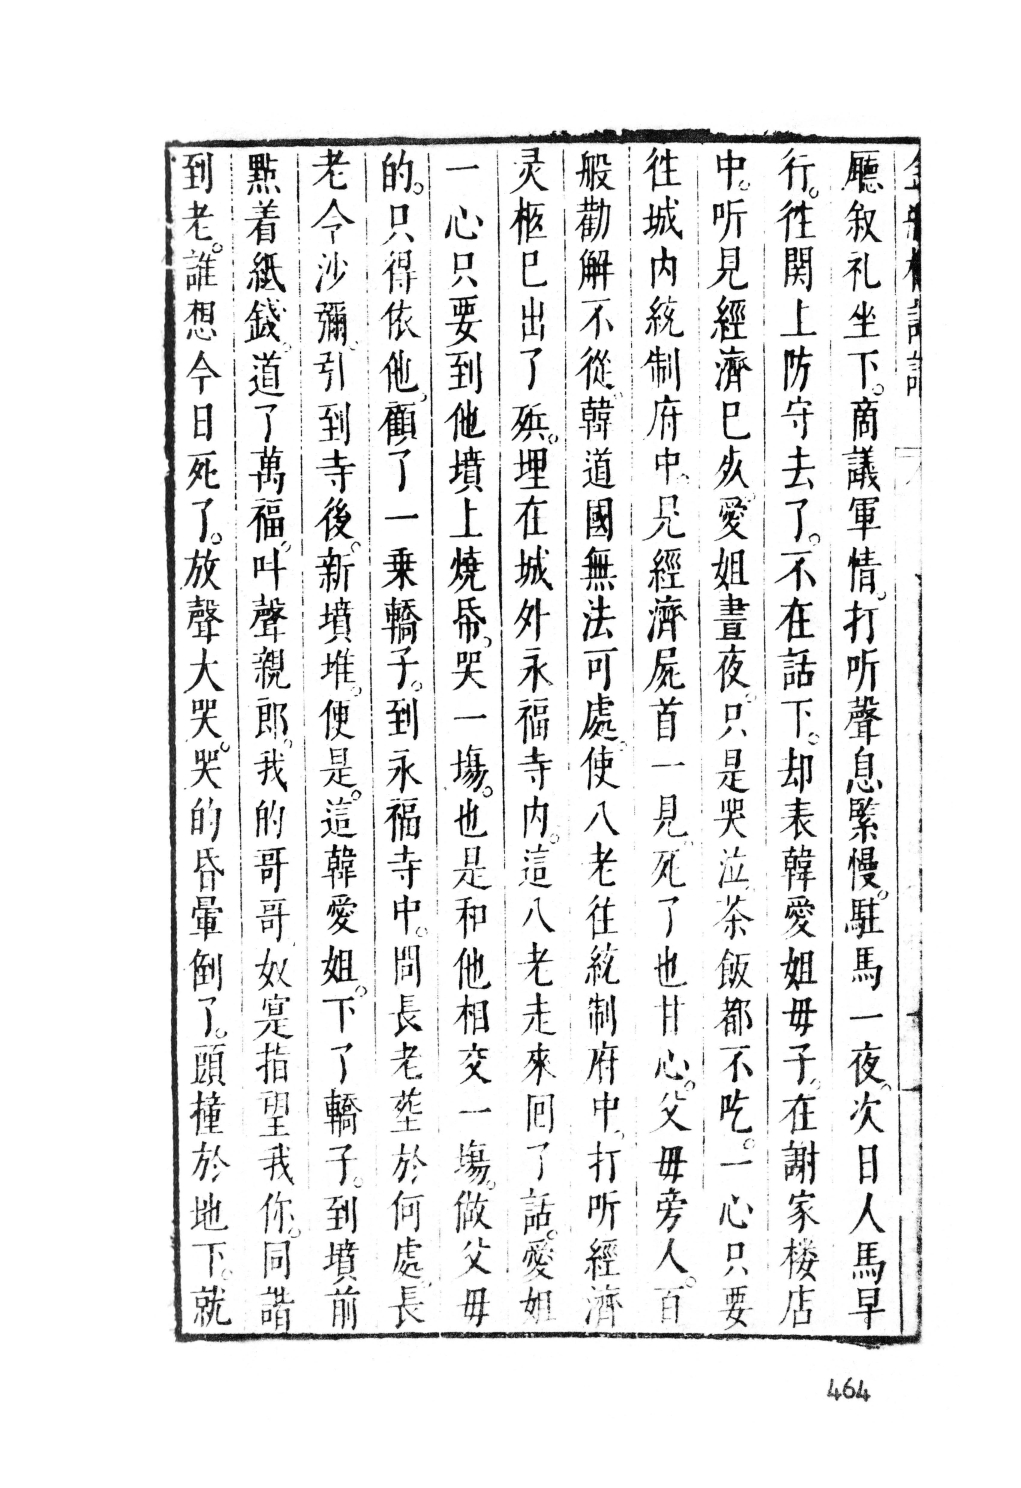 廳叙礼坐下。商議軍情。打听聲息緊慢。駐馬一夜。次日人馬早
行。徃関上防守去了。不在話下。却表韓愛姐母子。在謝家楼店
中。听見經濟已死。愛姐晝夜。只是哭泣。茶飯都不吃。一心只要
徃城内統制府中。見經濟屍首一見。死了也甘心。父母旁人。百
般勸解不從。韓道國無法可處。使八老往統制府中。打听經濟
灵柩已出了殯。埋在城外永福寺内。這八老走來囘了話。愛姐
一心只要到他墳上燒帋。哭一塲。也是和他相交一塲。做父母
的。只得依他。顧了一乗轎子。到永福寺中。問長老塟於何處。長
老令沙彌。引到寺後。新墳堆。便是。這韓愛姐。下了轎子。到墳前
點着紙錢。道了萬福。叫聲親郎。我的哥哥。奴寔指望我你。同諧
到老。誰想今日死了。放聲大哭。哭的昏暈倒了。頭撞於地下。就
464